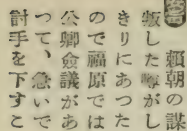 頼朝の謀
叛した噂がし
きりにあつた
ので福原では
公卿僉議があ
つて、急いで
討手を下すこ